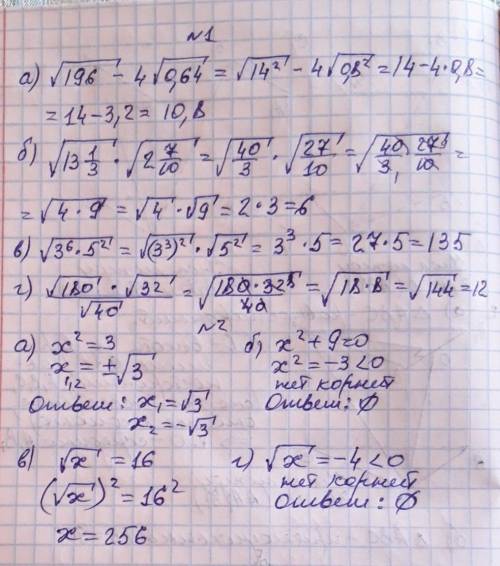 №1
а) √196 - 4√0,64 = √14² - 4√0,8² = 14 - 4·0,8 =
= 14 - 3,2 = 10,8
б) √(13 1/3) · √(2 7/10) = √(40/3) · √(27/10) = √(40/3 · 27/10) =
= √(4·9) = √4 · √9 = 2·3 = 6
в) √(3⁶·5²) = √((3³)²) · √5² = 3³·5 = 27·5 = 135
г) (√180 · √32)/√40 = √((180·32)/40) = √(18·8) = √144 = 12
№2
а) x² = 3
x₁,₂ = ±√3
Ответ: x₁ = √3
x₂ = -√3
б) x² + 9 = 0
x² = -3 < 0
нет корней
Ответ: ∅
в) √x = 16
(√x)² = 16²
x = 256
г) √x = -4 < 0
нет корней
Ответ: ∅